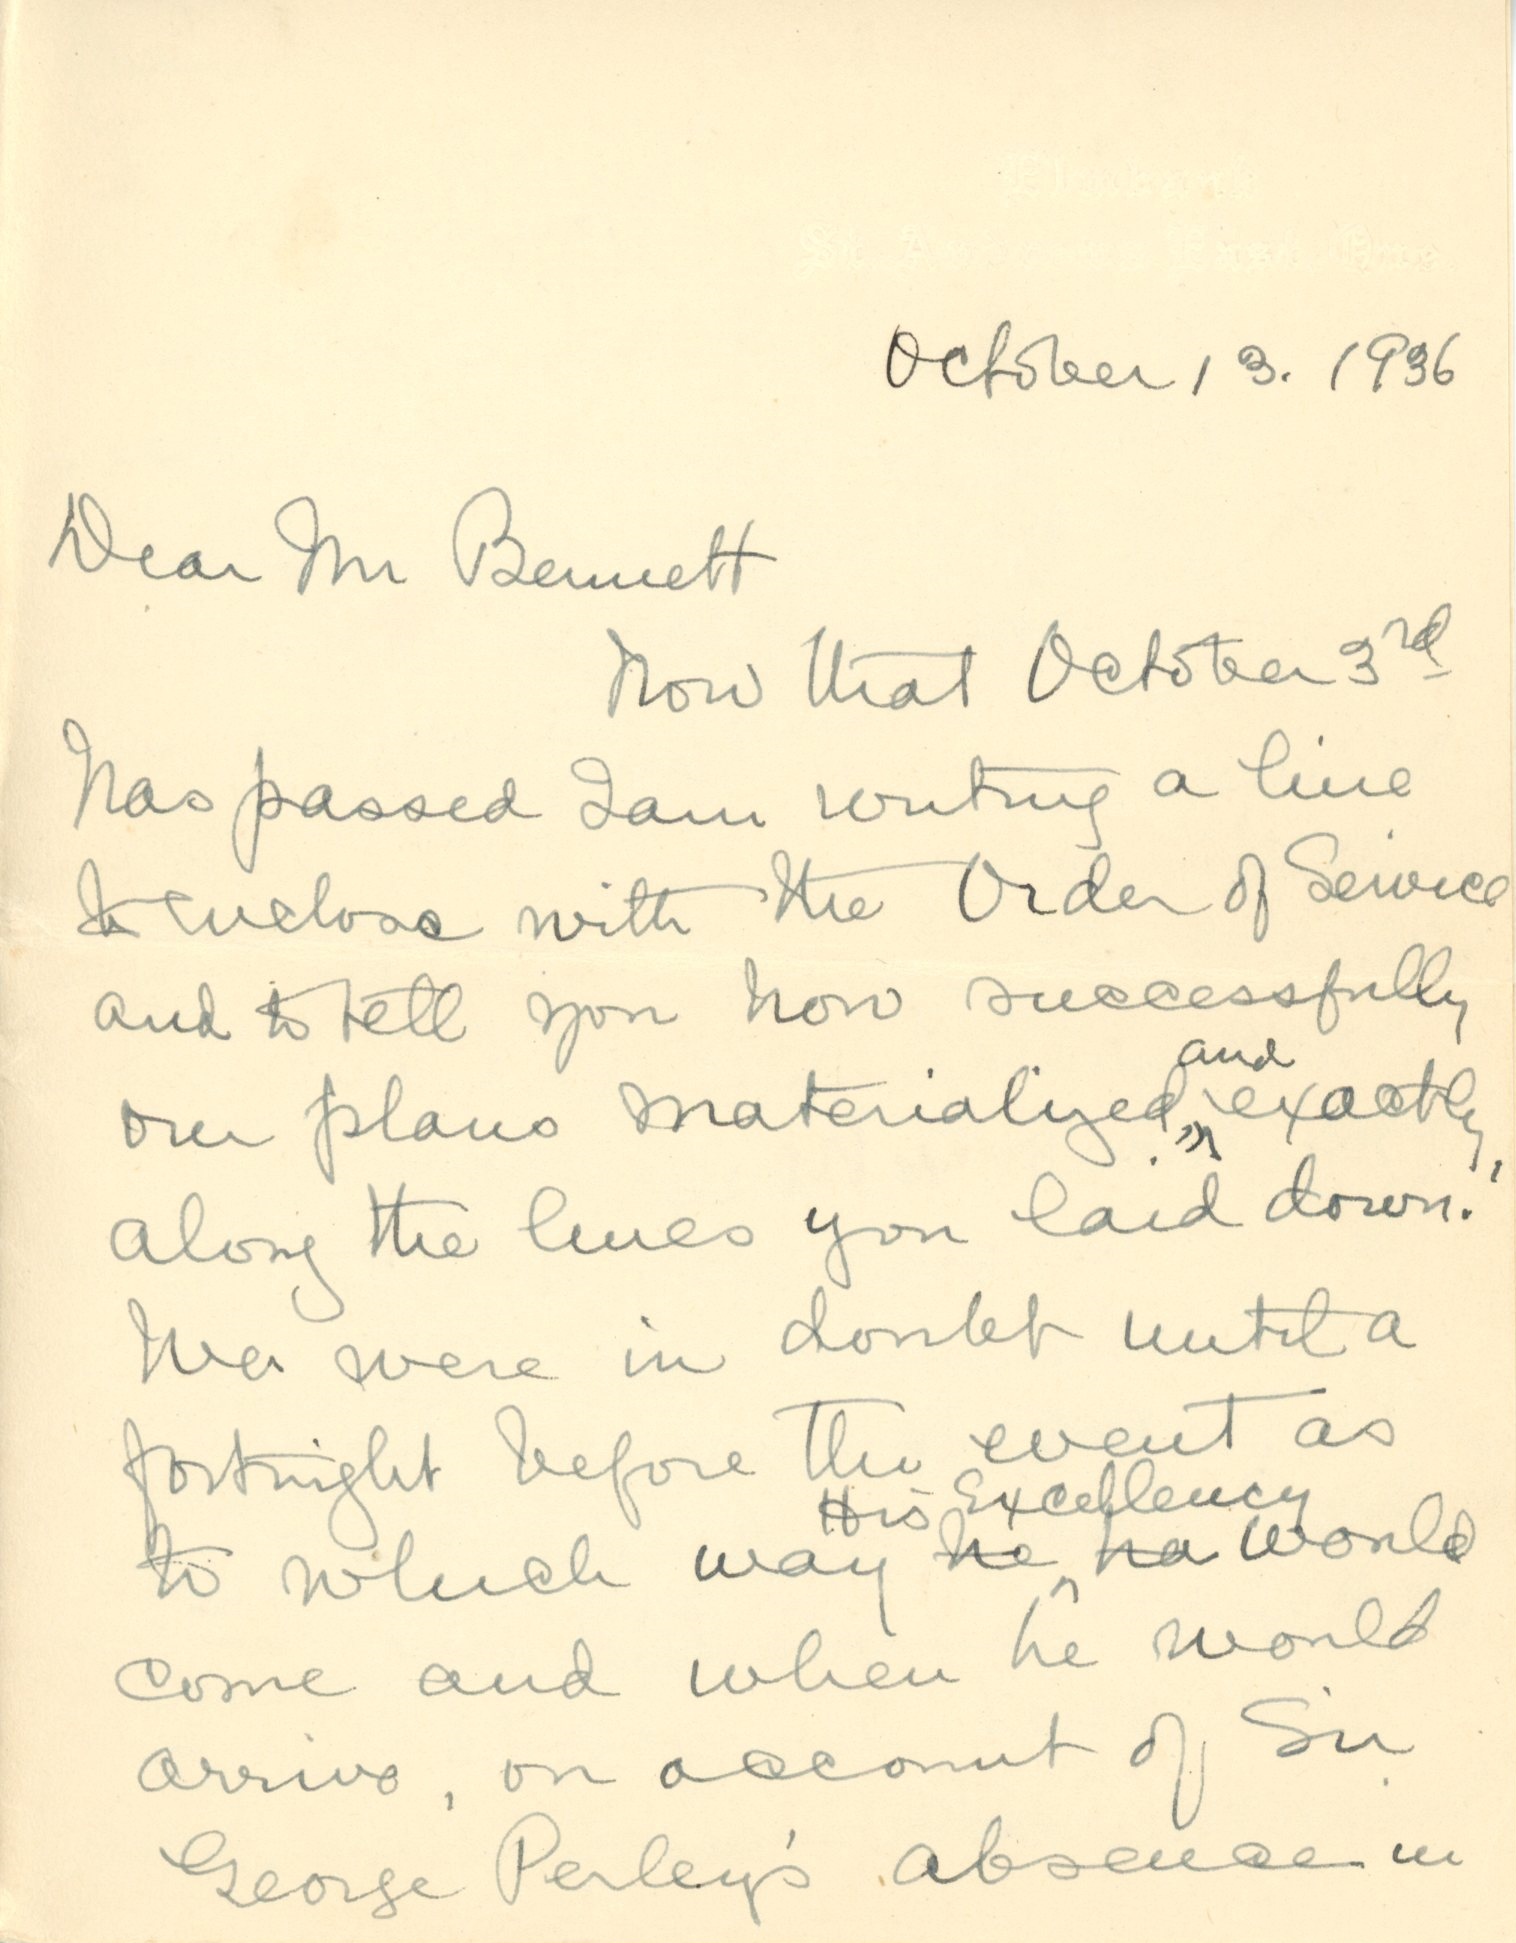 October 13. 1936
Dear Mr Bennett
Now that October 3rd
has passed I am writing a line
to enclose with the Order of Service
and to tell you how successfully
our plans materialized, and exactly,
along the lines you laid down.
We were in doubt until a
fortnight before the event as
to which way he His Excellency ha would
come and when he would
arrive, on account of Sir
George Perley's absence in